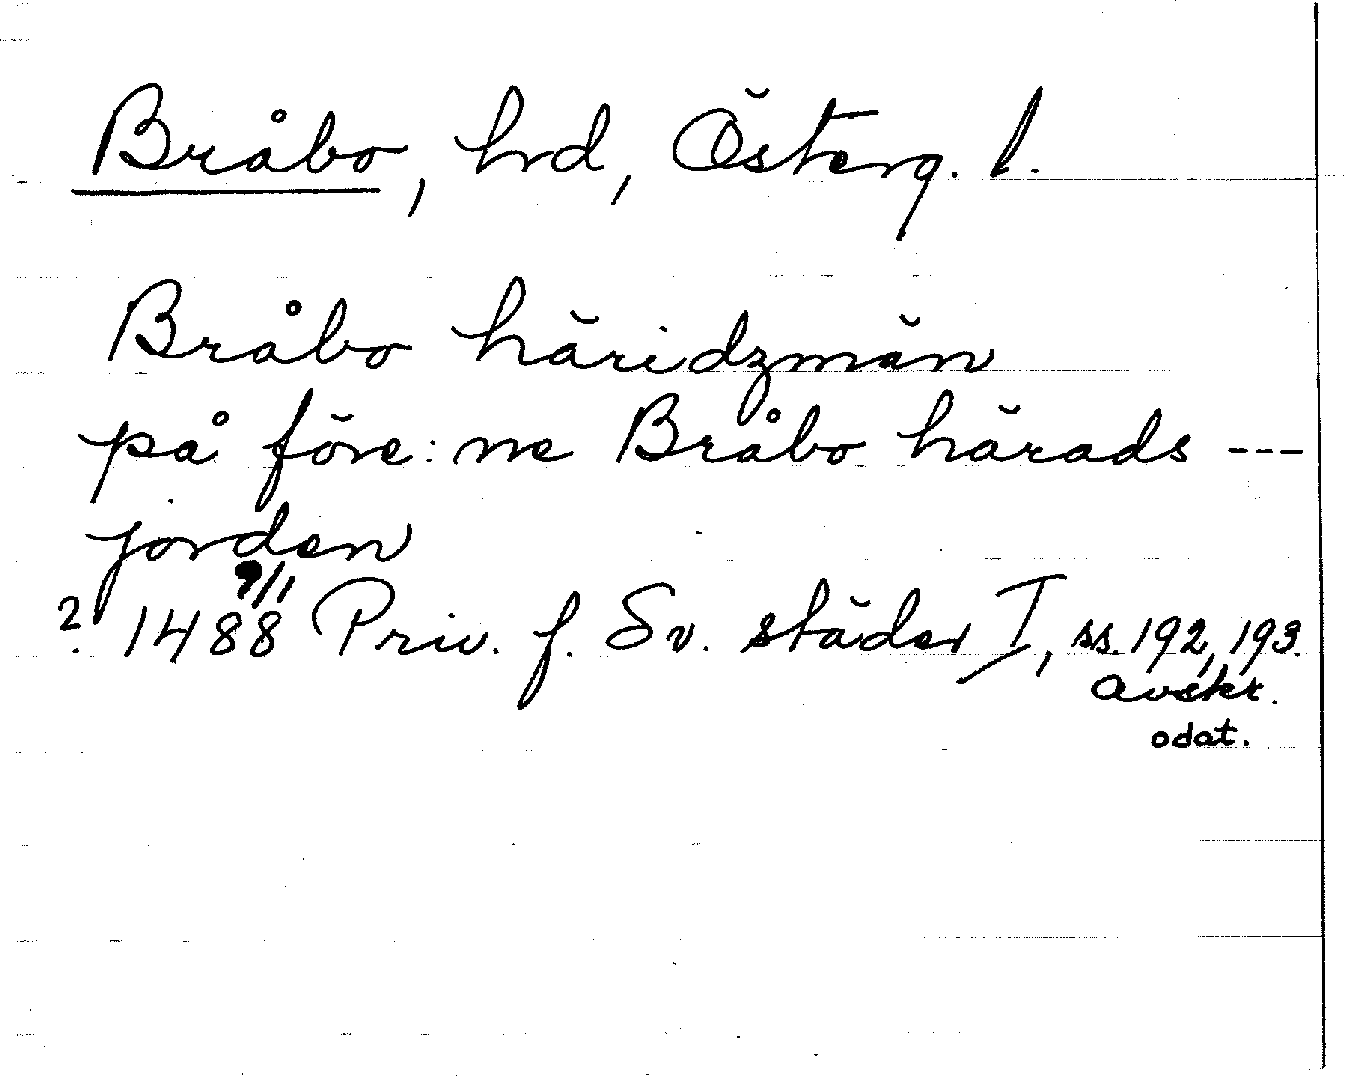 Bråbo, hrd, Österg. l.
Bråbo häridzmän
på före:ne Bråbo härads ---
jorden
? 1488 9/1 Priv. f. Sv. städer I, ss. 192, 193.
avskr.
odat.